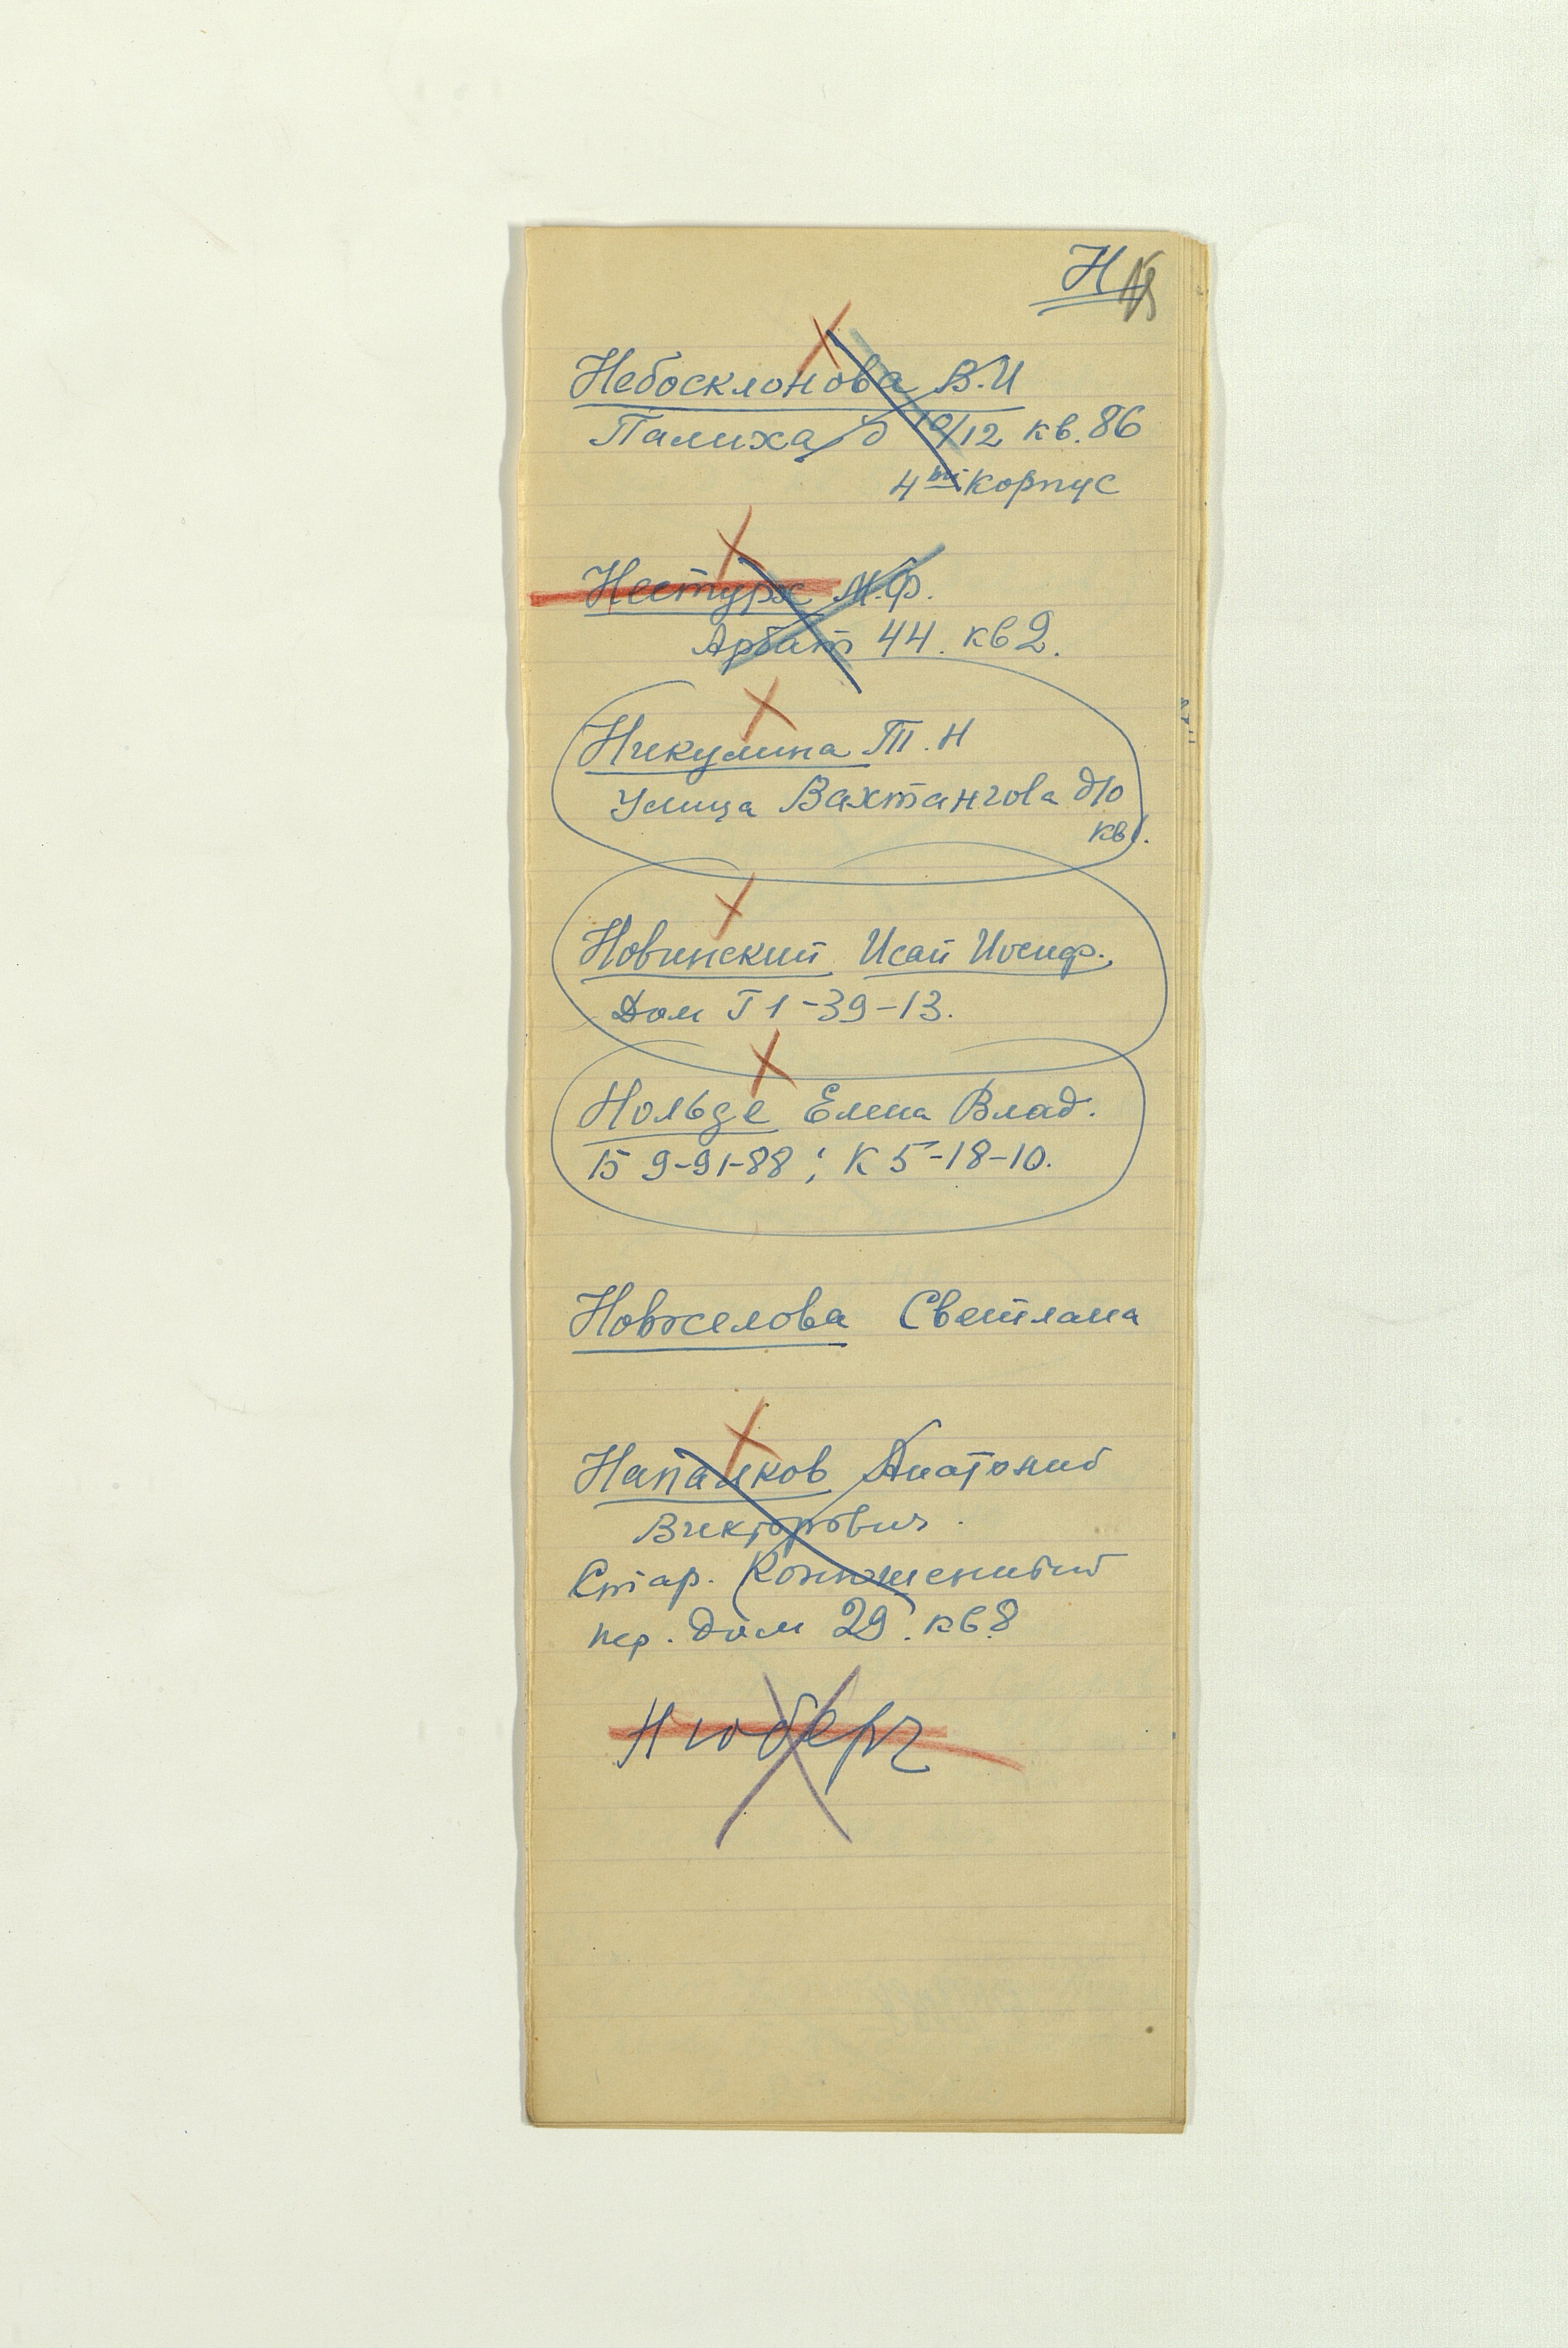 Н
Небосклонова В.И
Палиха д 10/12 кв. 86
4ый корпус
Нестурх М.Ф.
Арбат 44. кв 2.
Никулина Т.Н
Улица Вахтангова д10
кв1.
Новинский Исай Иосиф.
Дом Г 1-39-13.
Нольде Елена Влад.
Б 9-91-88; К 5-18-10.
Новоселова Светлана
Напалков Анатолий
Викторович.
Стар. Конюшенный
пер. дом 29. кв 8
Нюберг